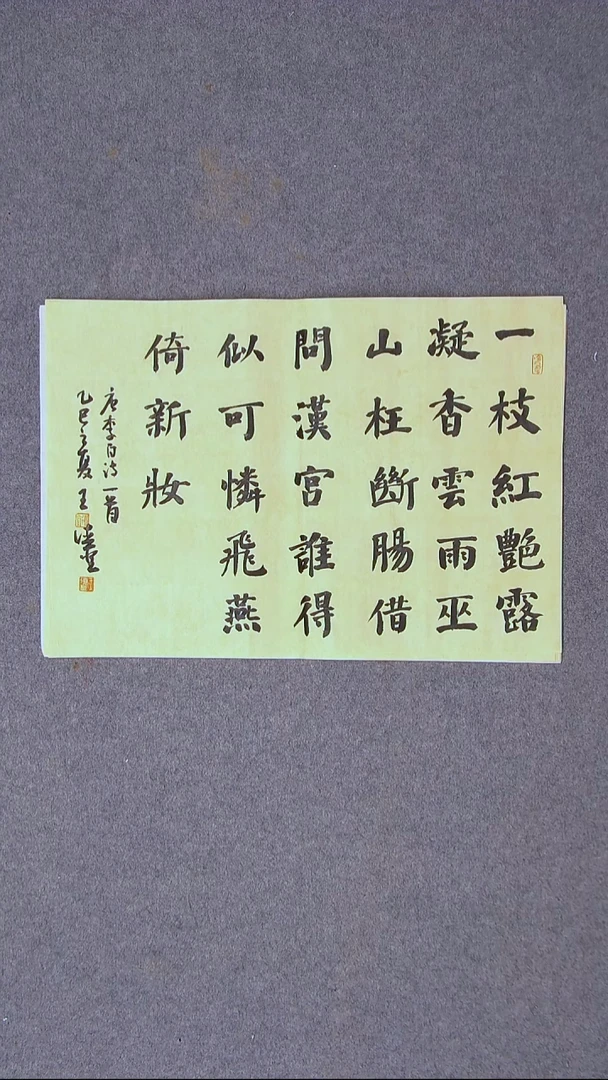 一枝紅艷露
凝香雲雨巫
山枉斷腸借
問漢宮誰得
似可憐飛燕
倚新妝
唐李白詩一首
乙巳之夏王